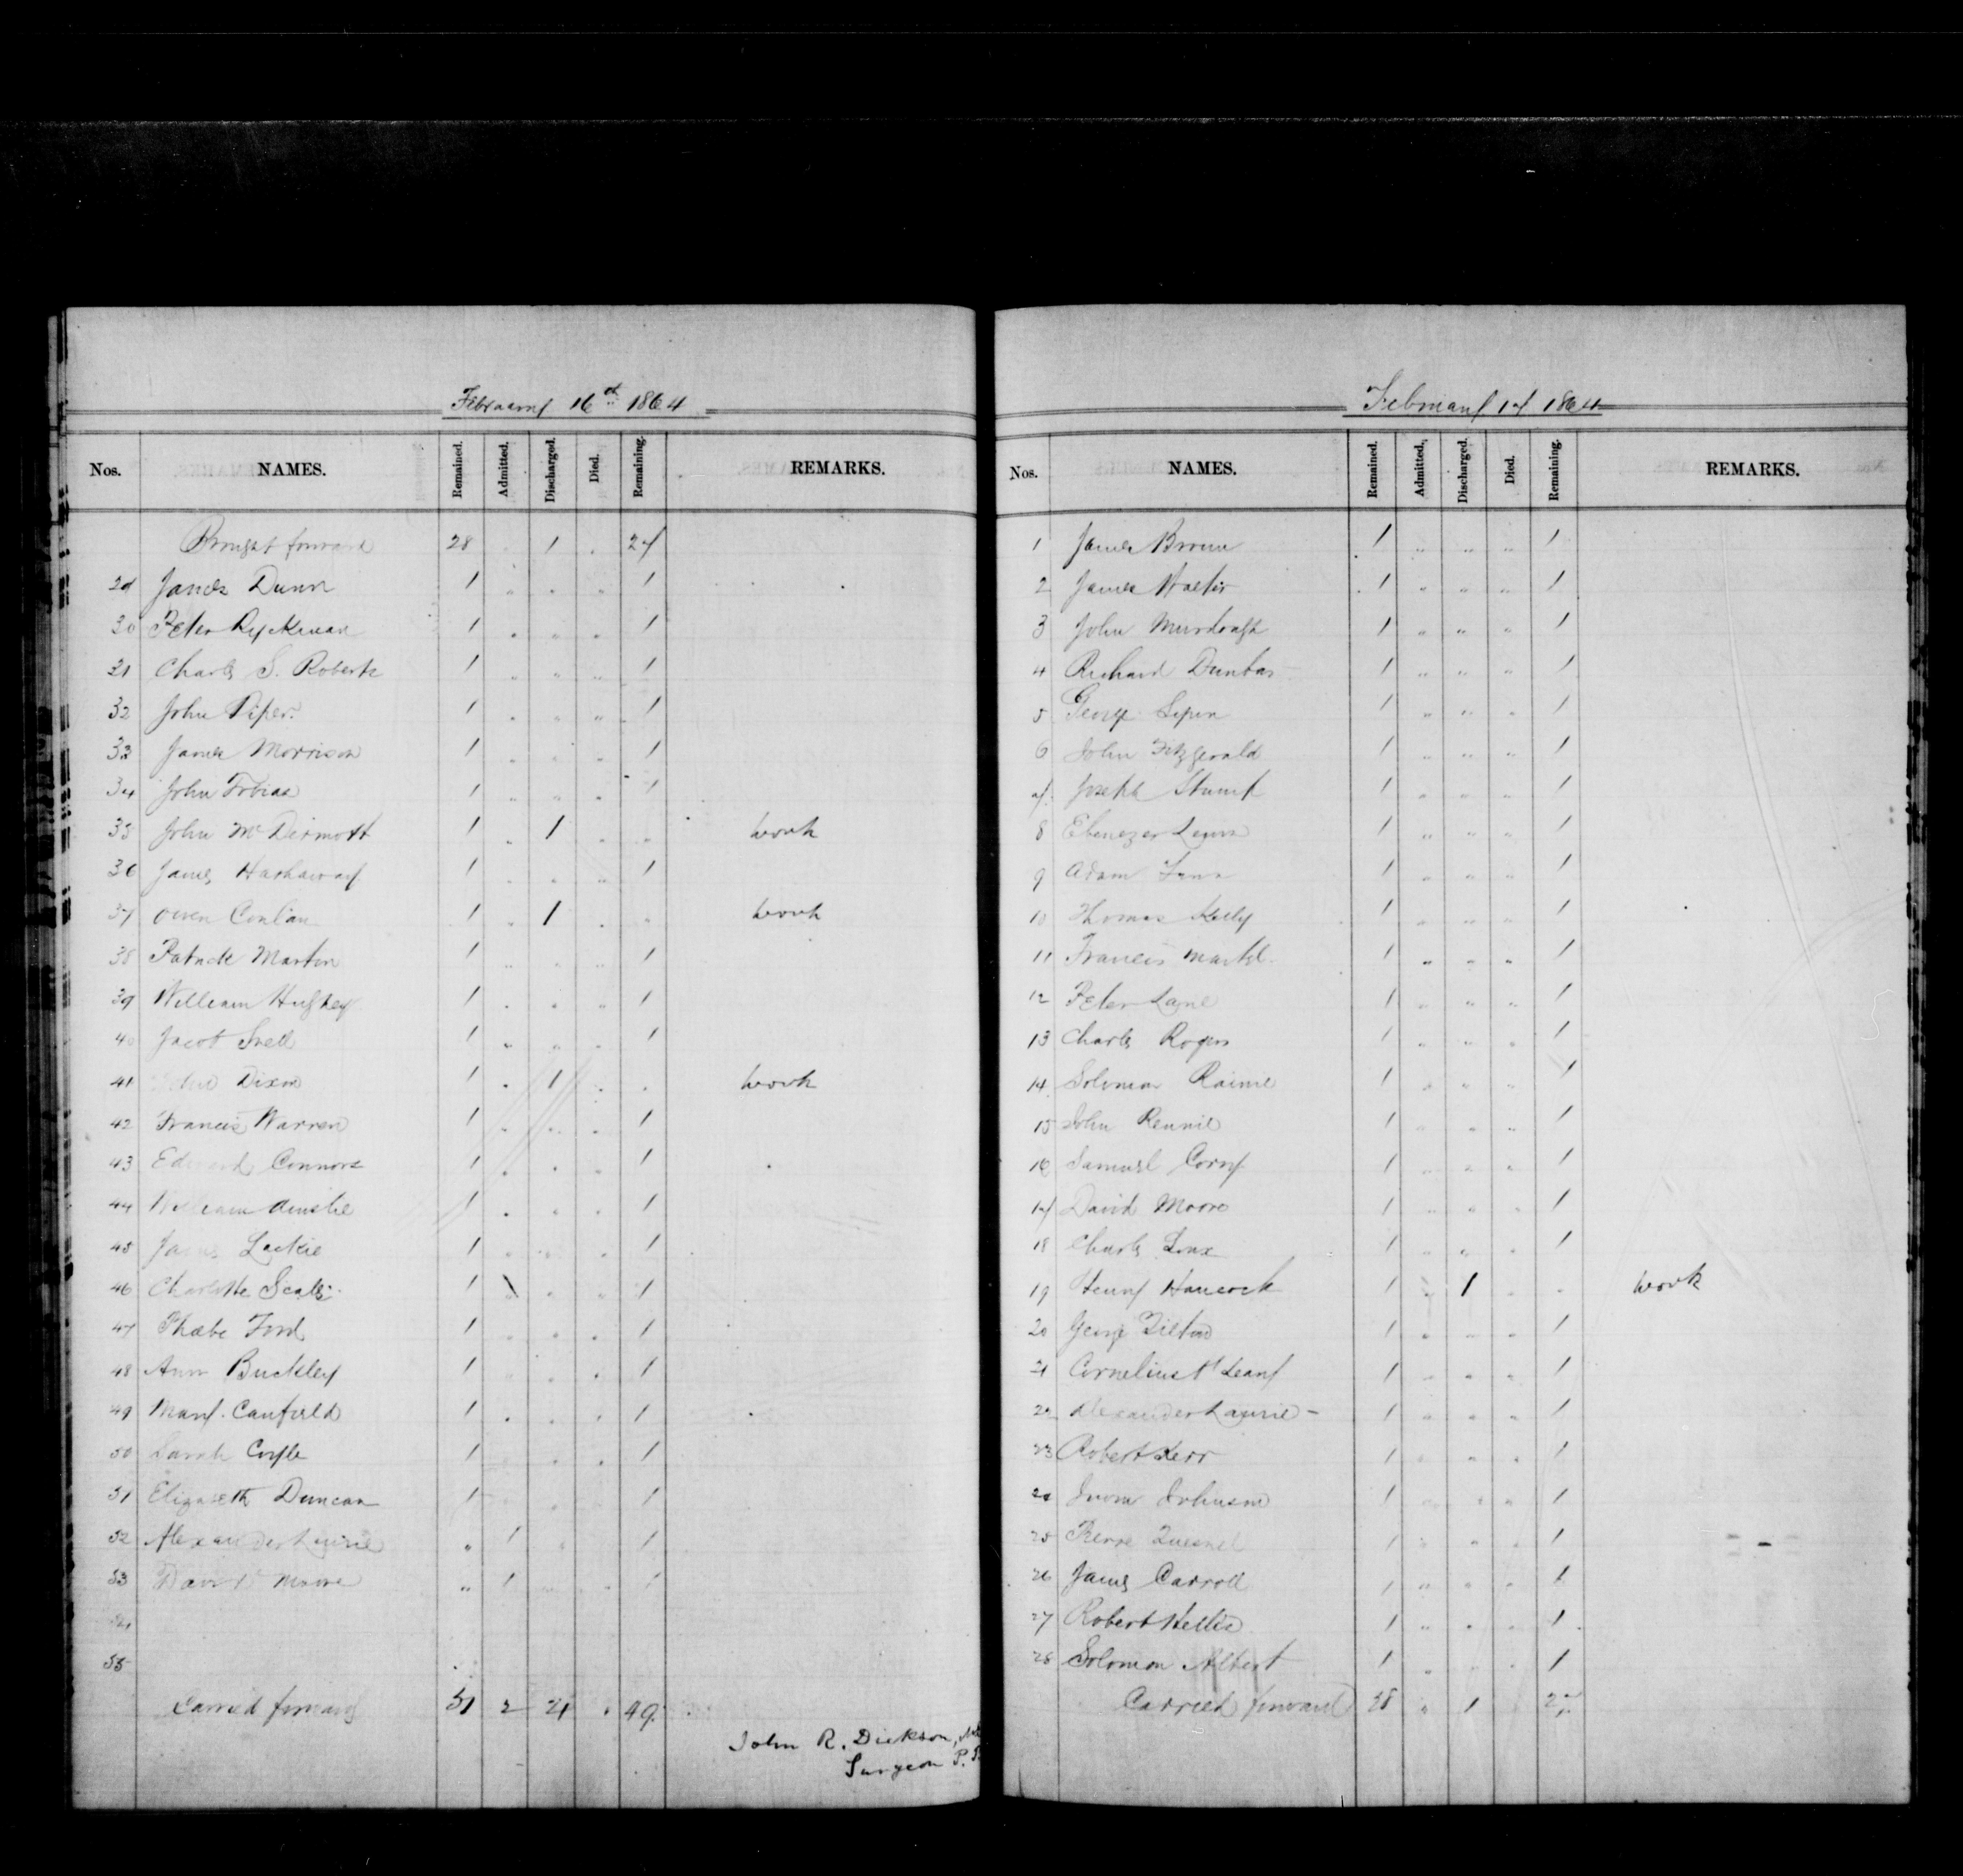 February 16th 1864
Nos. NAMES. Remained. Admitted. Discharged. Died. Remaining. REMARKS.
Brought forward 28 . 1 . 27
29 James Dunn 1 " " " 1
30 Peter Ryckman 1 " " " 1
31 Charles S. Roberts 1 " " " 1
32 John Piper. 1 " " " 1
33 James Morrison 1 " " " 1
34 John Tobias 1 " " " 1
35 John McDermott 1 " 1 " " work
36 James Hathaway 1 " " " 1
37 Owen Conlan 1 " 1 " " work
38 Patrick Martin 1 " " " 1
39 William Hughey 1 " " " 1
40 Jacob Snell 1 " " " 1
41 Dixon 1 " 1 " " work
42 Francis Warren 1 " " " 1
43 Edward Connors 1 " " " 1
44 William Ainslie 1 " " " 1
45 James Leckie 1 " " " 1
46 Charlotte Scales 1 " " " 1
47 Phoebe Ford 1 " " " 1
48 Ann Buckley 1 " " " 1
49 Mary Canfield 1 " " " 1
50 Sarah Coyle 1 " " " 1
51 Elizabeth Duncan 1 " " " 1
52 Alexander Laurie " 1 " " 1
53 David Moore " 1 " " 1
54
55
Carried forward 51 2 4 " 49
John R. Dickson,
Surgeon P.
February 17 1864
Nos. NAMES. Remained. Admitted. Discharged. Died. Remaining. REMARKS.
1 James Brown 1 " " " 1
2 James Walter 1 " " " 1
3 John Murdough 1 " " " 1
4 Richard Dunbar 1 " " " 1
5 George 1 " " " 1
6 John Fitzgerald 1 " " " 1
7 Joseph Stump 1 " " " 1
8 Ebenezer Lewis 1 " " " 1
9 Adam 1 " " " 1
10 Thomas Kelly 1 " " " 1
11 Francis Martel 1 " " " 1
12 Peter Lane 1 " " " 1
13 Charles Rogers 1 " " " 1
14 Solomon 1 " " " 1
15 John Rennie 1 " " " 1
16 Samuel Corey 1 " " " 1
17 David Moore 1 " " " 1
18 Charles 1 " " " 1
19 Henry Hancock 1 " 1 " " work
20 George Tilton 1 " " " 1
21 Cornelius Leary 1 " " " 1
22 Alexander Laurie 1 " " " 1
23 Robert Kerr 1 " " " 1
24 Johnson 1 " " " 1
25 Pierre Quesnel 1 " " " 1
26 James Carroll 1 " " " 1
27 Robert 1 " " " 1
28 Solomon Albert 1 " " " 1
Carried forward 28 " 1 27